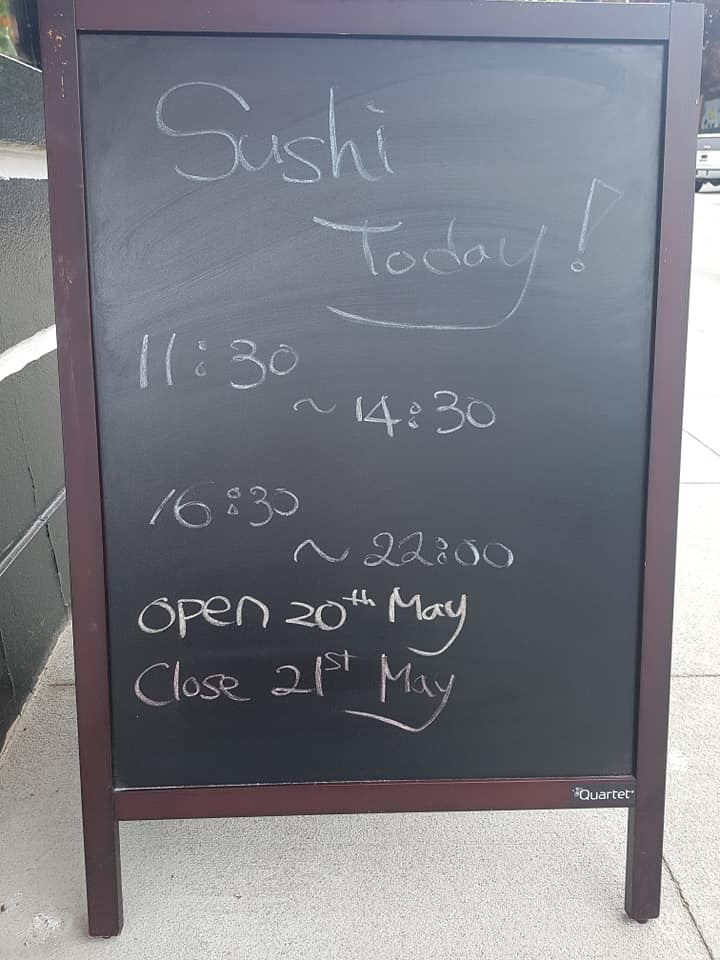 Sushi
Today!
11:30
~ 14:30
16:30
~ 22:00
open 20th May
Close 21st May
Quartet